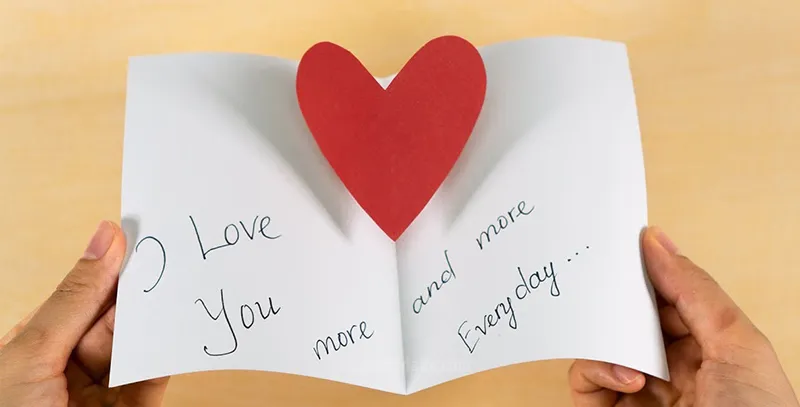 I Love
You
more
and more
Everyday...